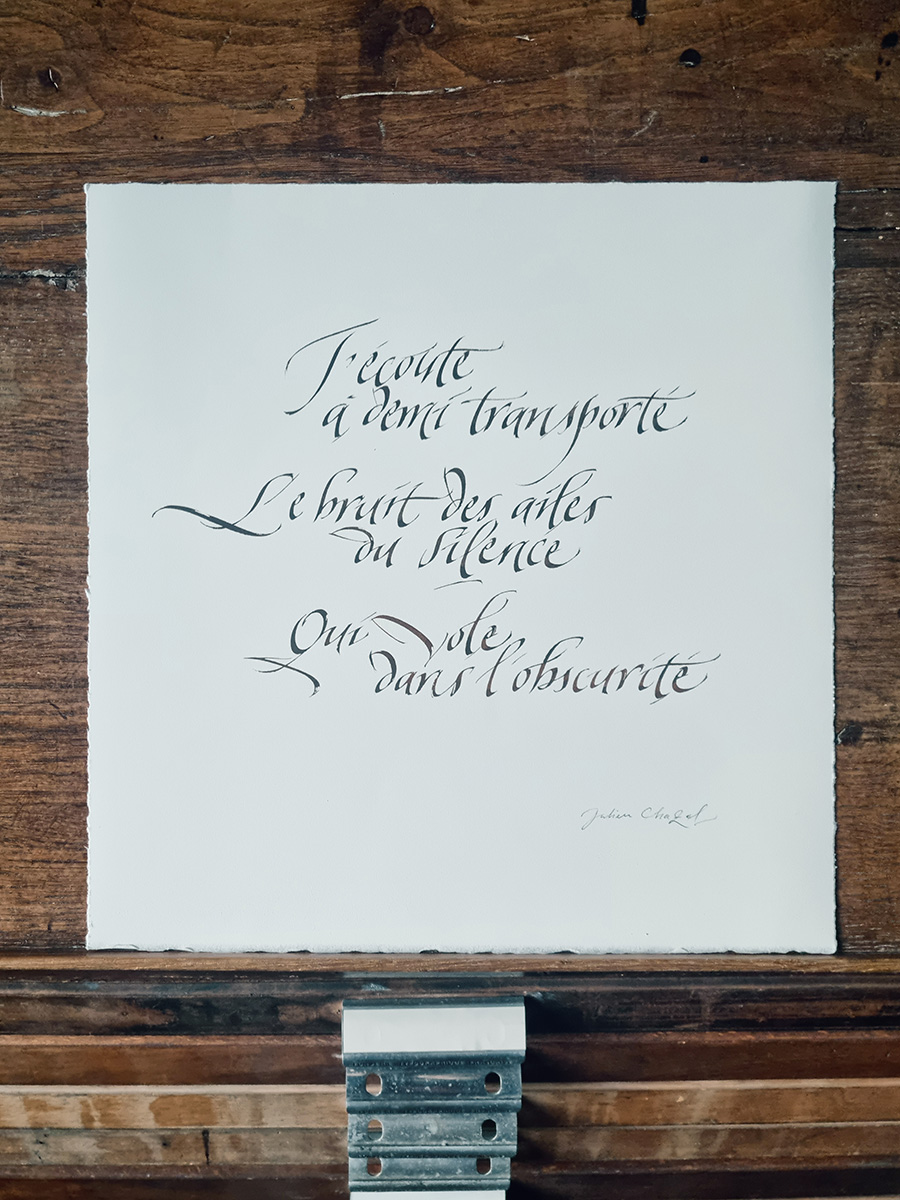 J'écoute
à demi transporté
Le bruit des ailes
du silence
Qui vole
dans l'obscurité
Julien Chazal